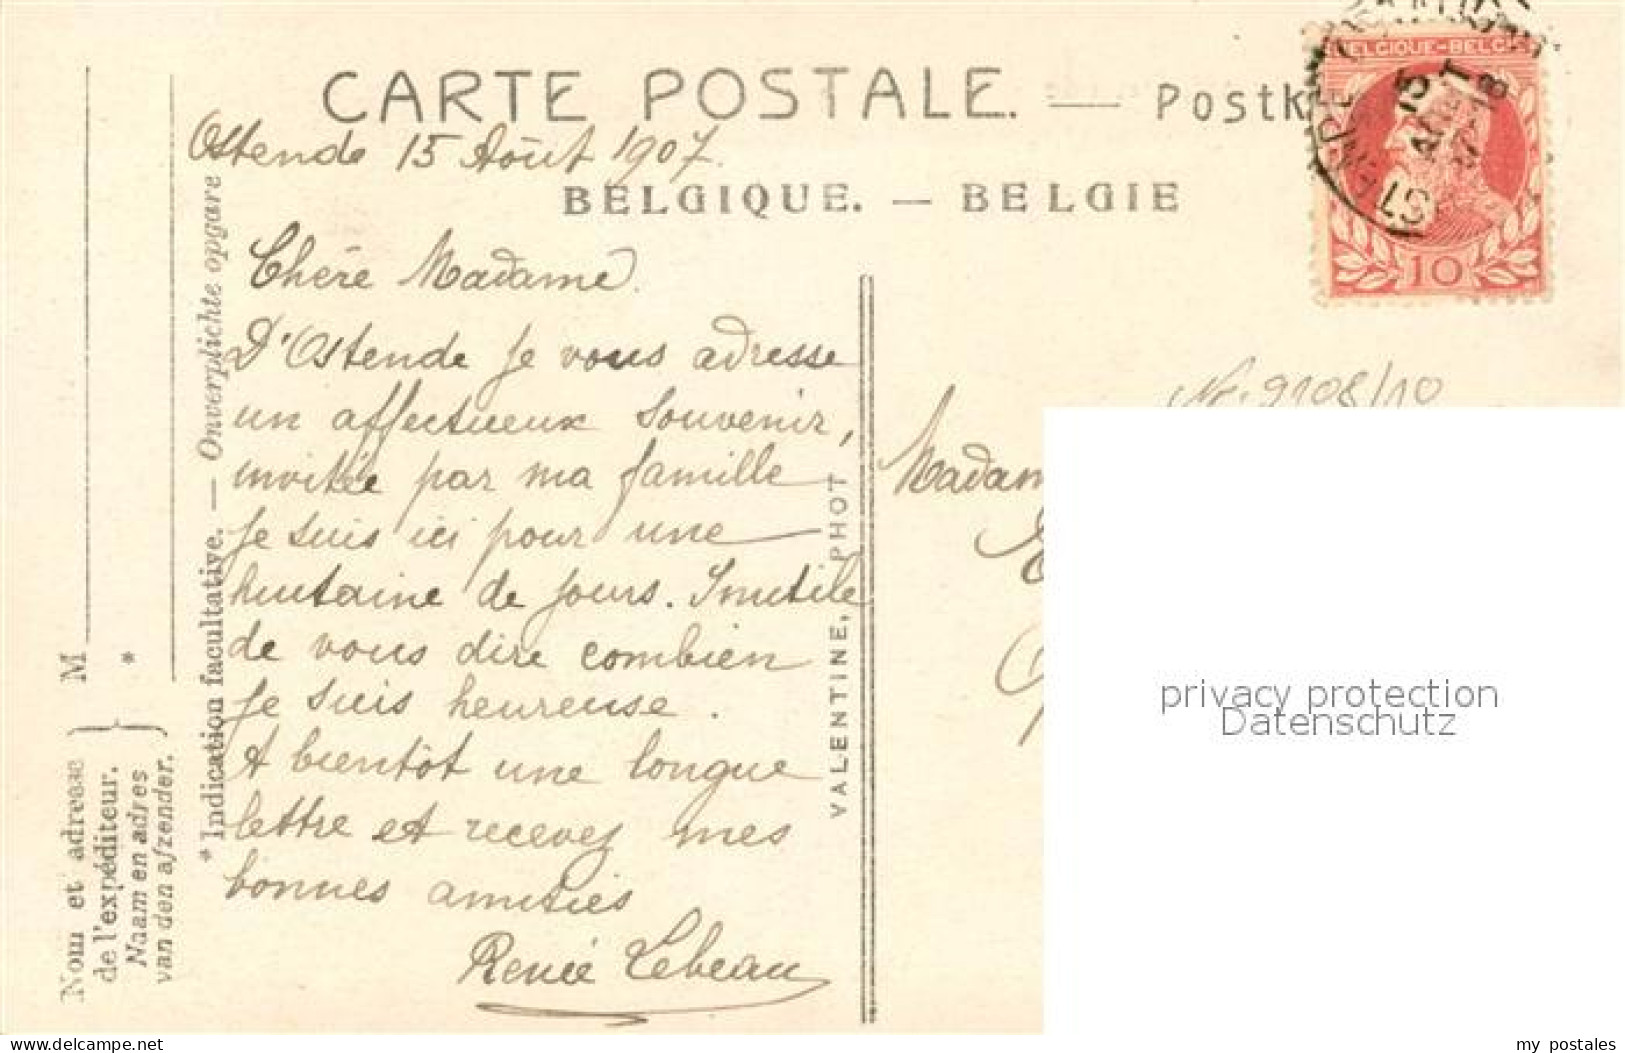 CARTE POSTALE. — Postk
BELGIQUE. — BELGIE
BELGIQUE-BELGI
15
10
Ostende 15 Août 1907.
Chère Madame.
D'Ostende je vous adresse
un affectueux souvenir,
invitée par ma famille
je suis ici pour une
huitaine de jours. Inutile
de vous dire combien
je suis heureuse.
A bientôt une longue
lettre et recevez mes
bonnes amitiés
Renée Lebeau
Nr. 9108/10
Madam
VALENTINE, PHOT
M
*
Nom et adresse
de l'expéditeur.
Naam en adres
van den afzender.
* Indication facultative. — Onverplichte opgare
privacy protection
Datenschutz
www.delcampe.net
my_postales